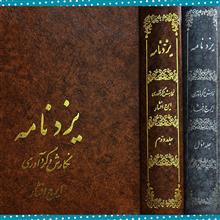 یزدنامه
نگارش و گردآوری
ایرج افشار
یزدنامه
نگارش و گردآوری
ایرج افشار
جلد دوم
یزدنامه
نگارش و گردآوری
ایرج افشار
جلد اول